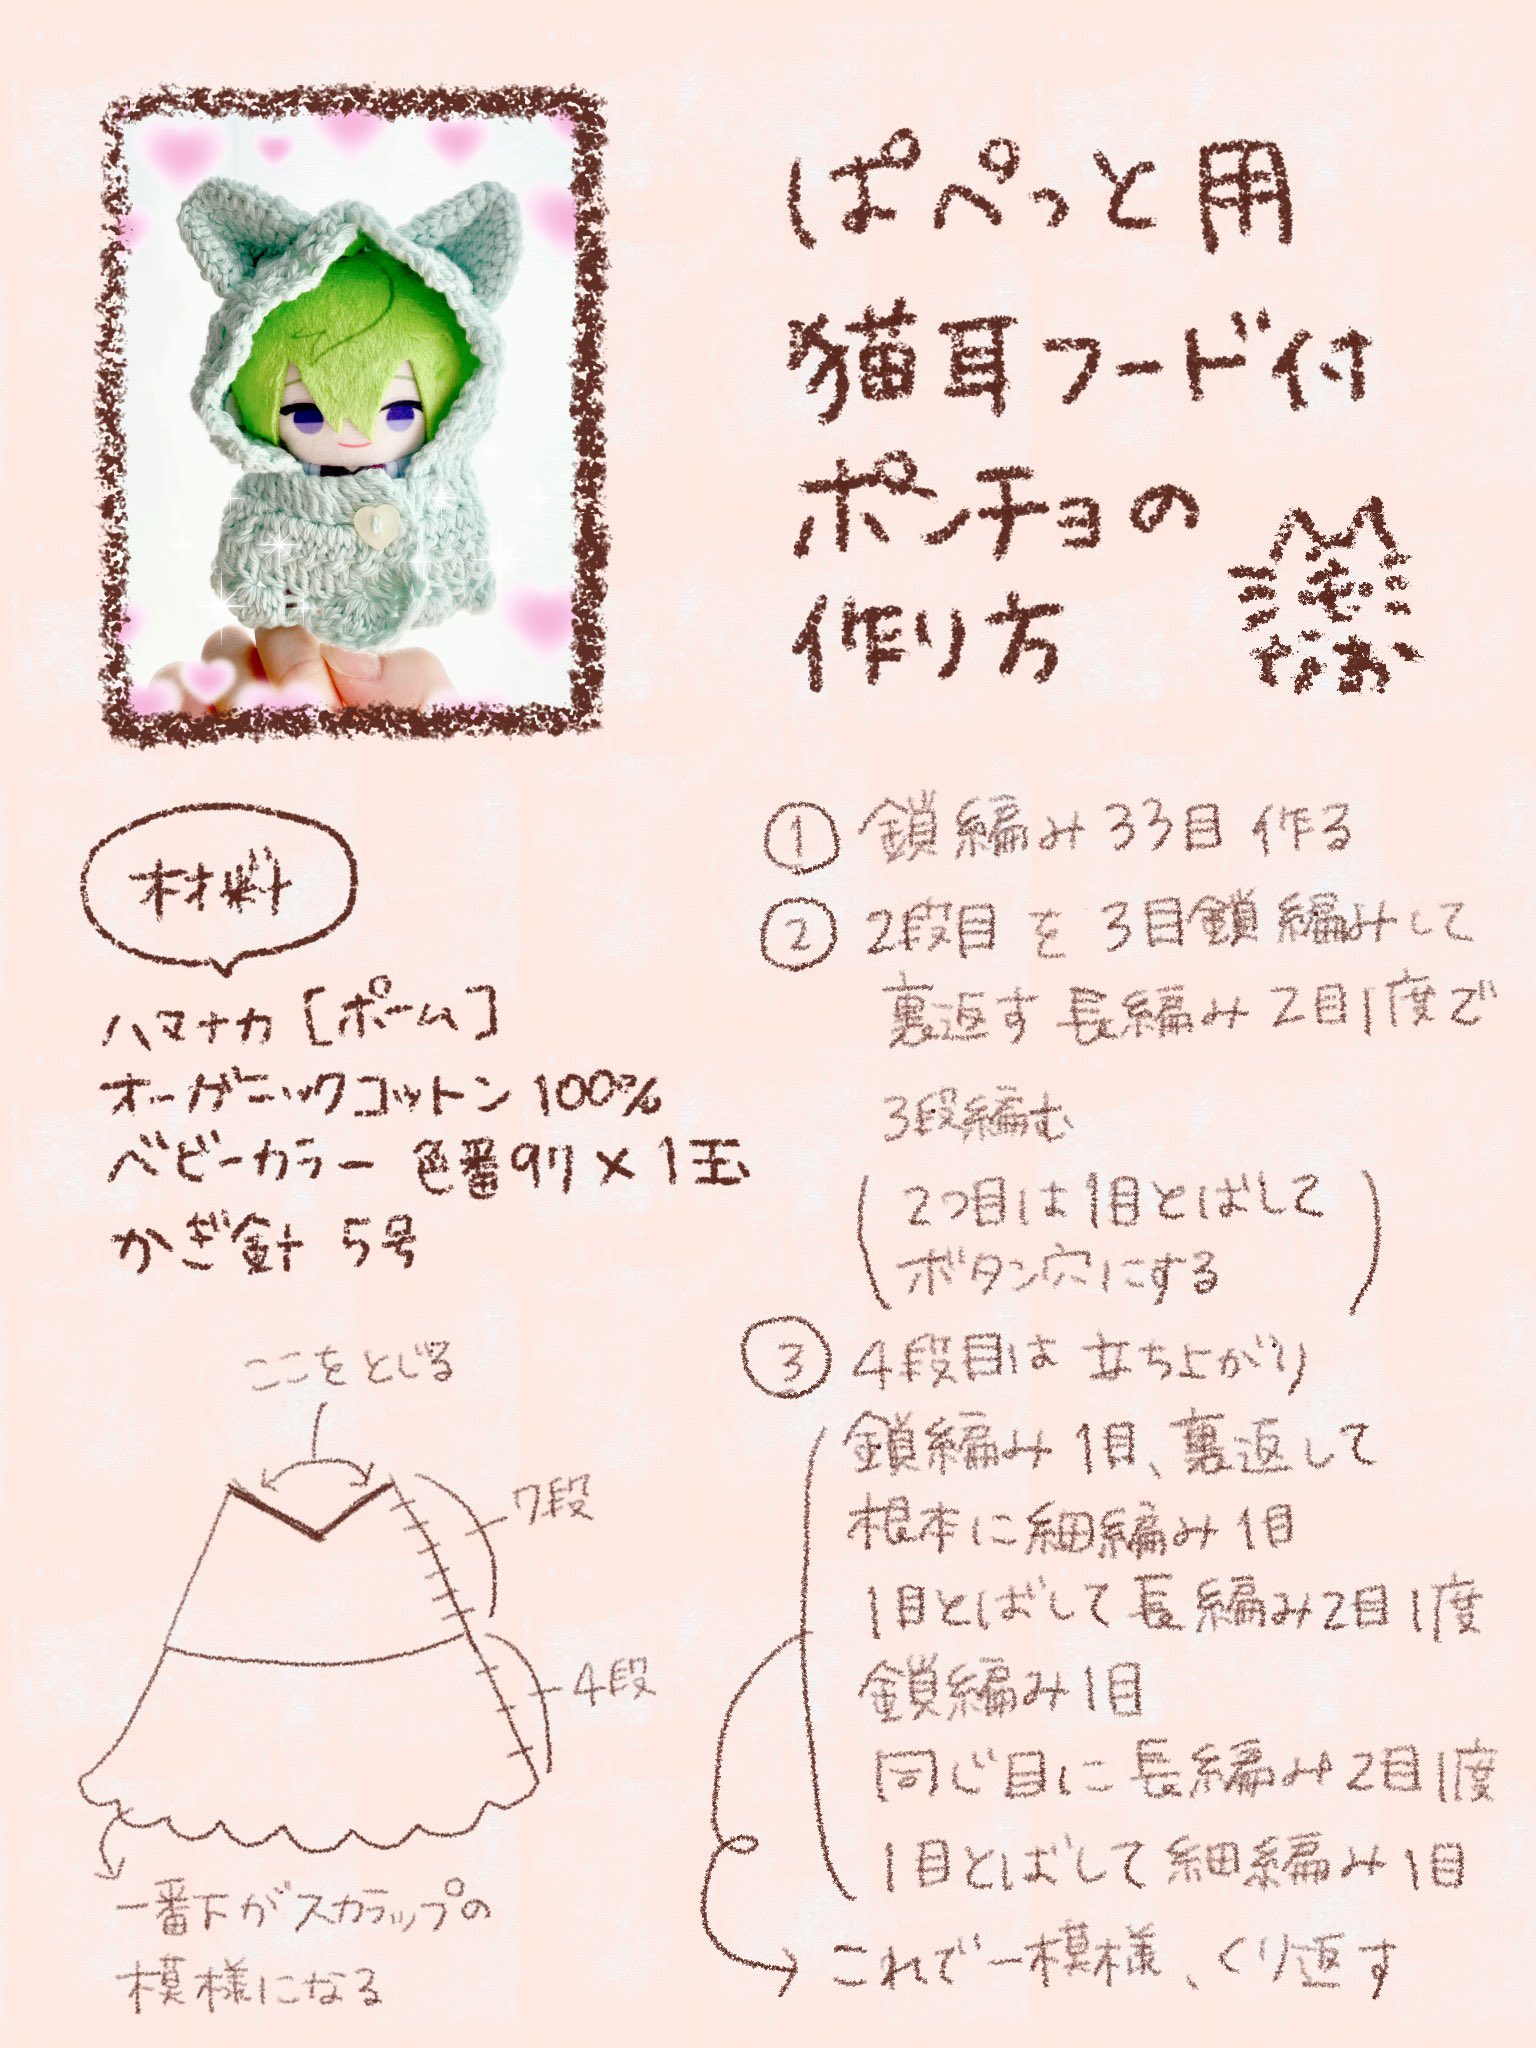 ぱぺっと用
猫耳フード付
ポンチョの
作り方
材料
ハマナカ[ポーム]
オーガニックコットン100%
ベビーカラー 色番97×1玉
かぎ針 5号
ここをとじる
7段
4段
一番下がスカラップの
模様になる
① 鎖編み33目作る
② 2段目を3目鎖編みして
裏返す長編み2目1度で
3段編む
(2つ目は1目とばして
ボタン穴にする)
③ 4段目は立ち上がり
鎖編み1目、裏返して
根本に細編み1目
1目とばして長編み2目1度
鎖編み1目
同じ目に長編み2目1度
1目とばして細編み1目
これで一模様、くり返す